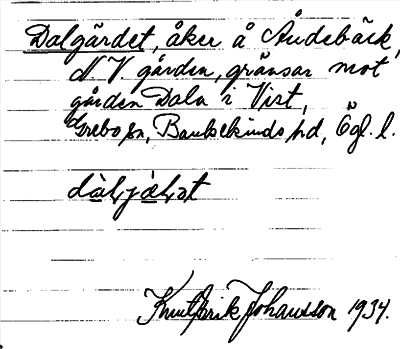 Dalgärdet, åker å Åndebäck,
N V gården, gränsar mot
gården Daln i Vist,
Grebo sn, Bankekinds hd, Ögl. l.
Knut Erik Johansson 1934.